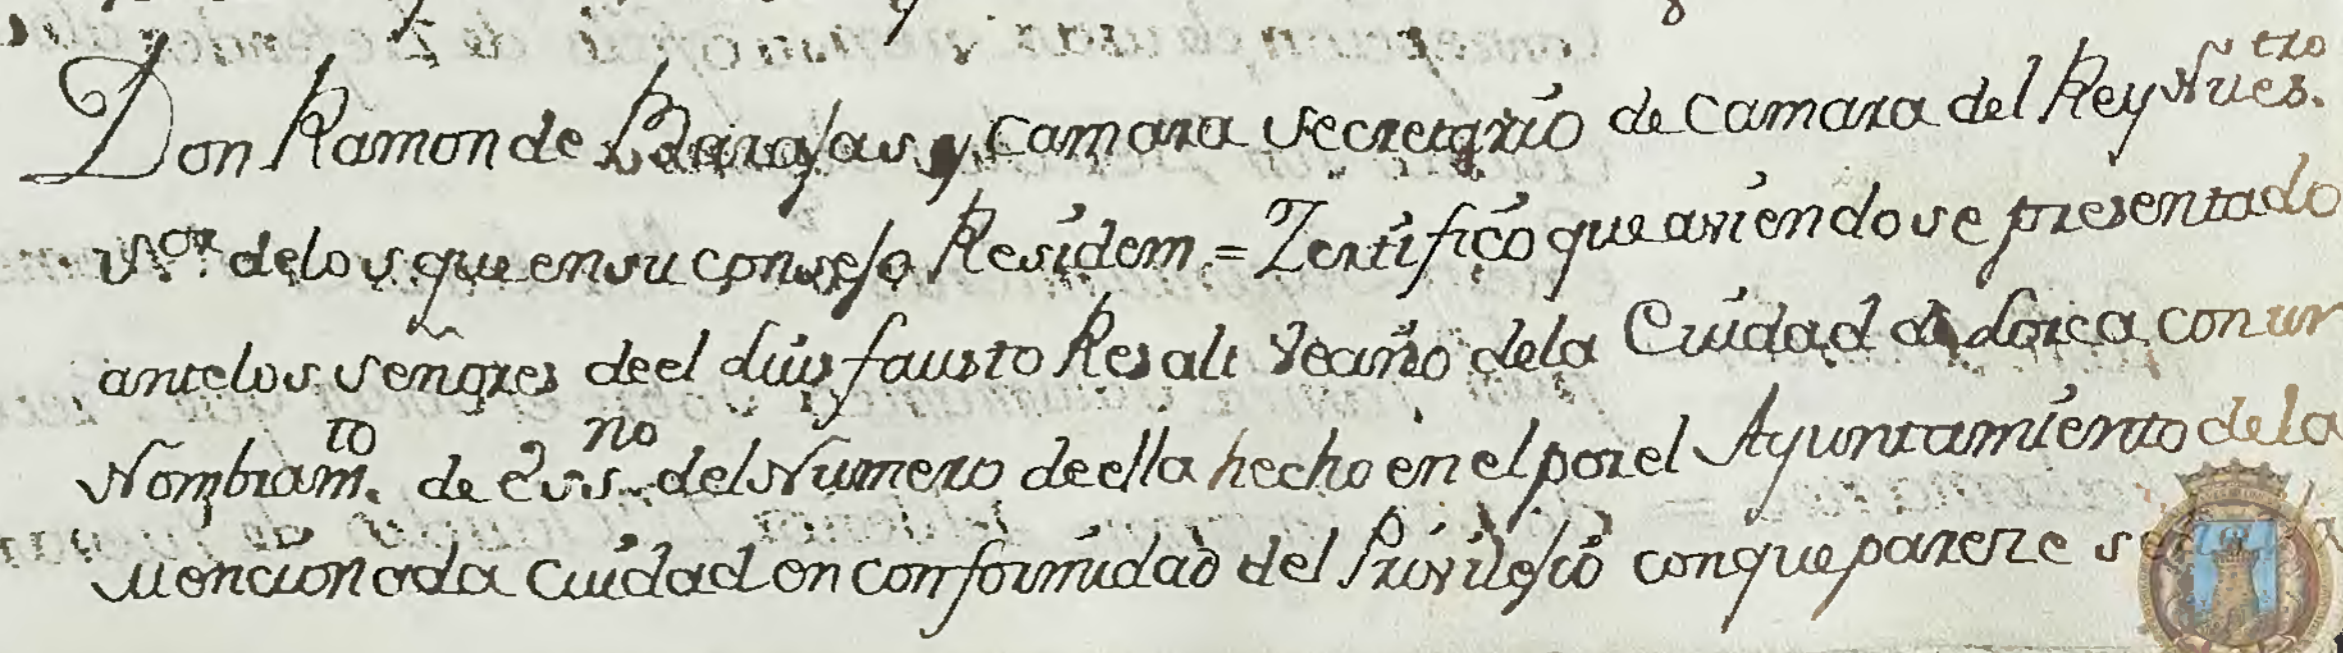 Don Ramon de Barajas y camara secretario de camara del Rey Nues.tro
S.or de los que en su consejo Residem = Zertifico que aviendose presentado
ante los señores de el Luis fausto Resalt Vecino de la Ciudad de Lorca con un
Nombram.to de Ess.no del Numero de ella hecho en el por el Ayuntamiento de la
Mencionada Ciudad en conformidad del Privilejio con que pareze